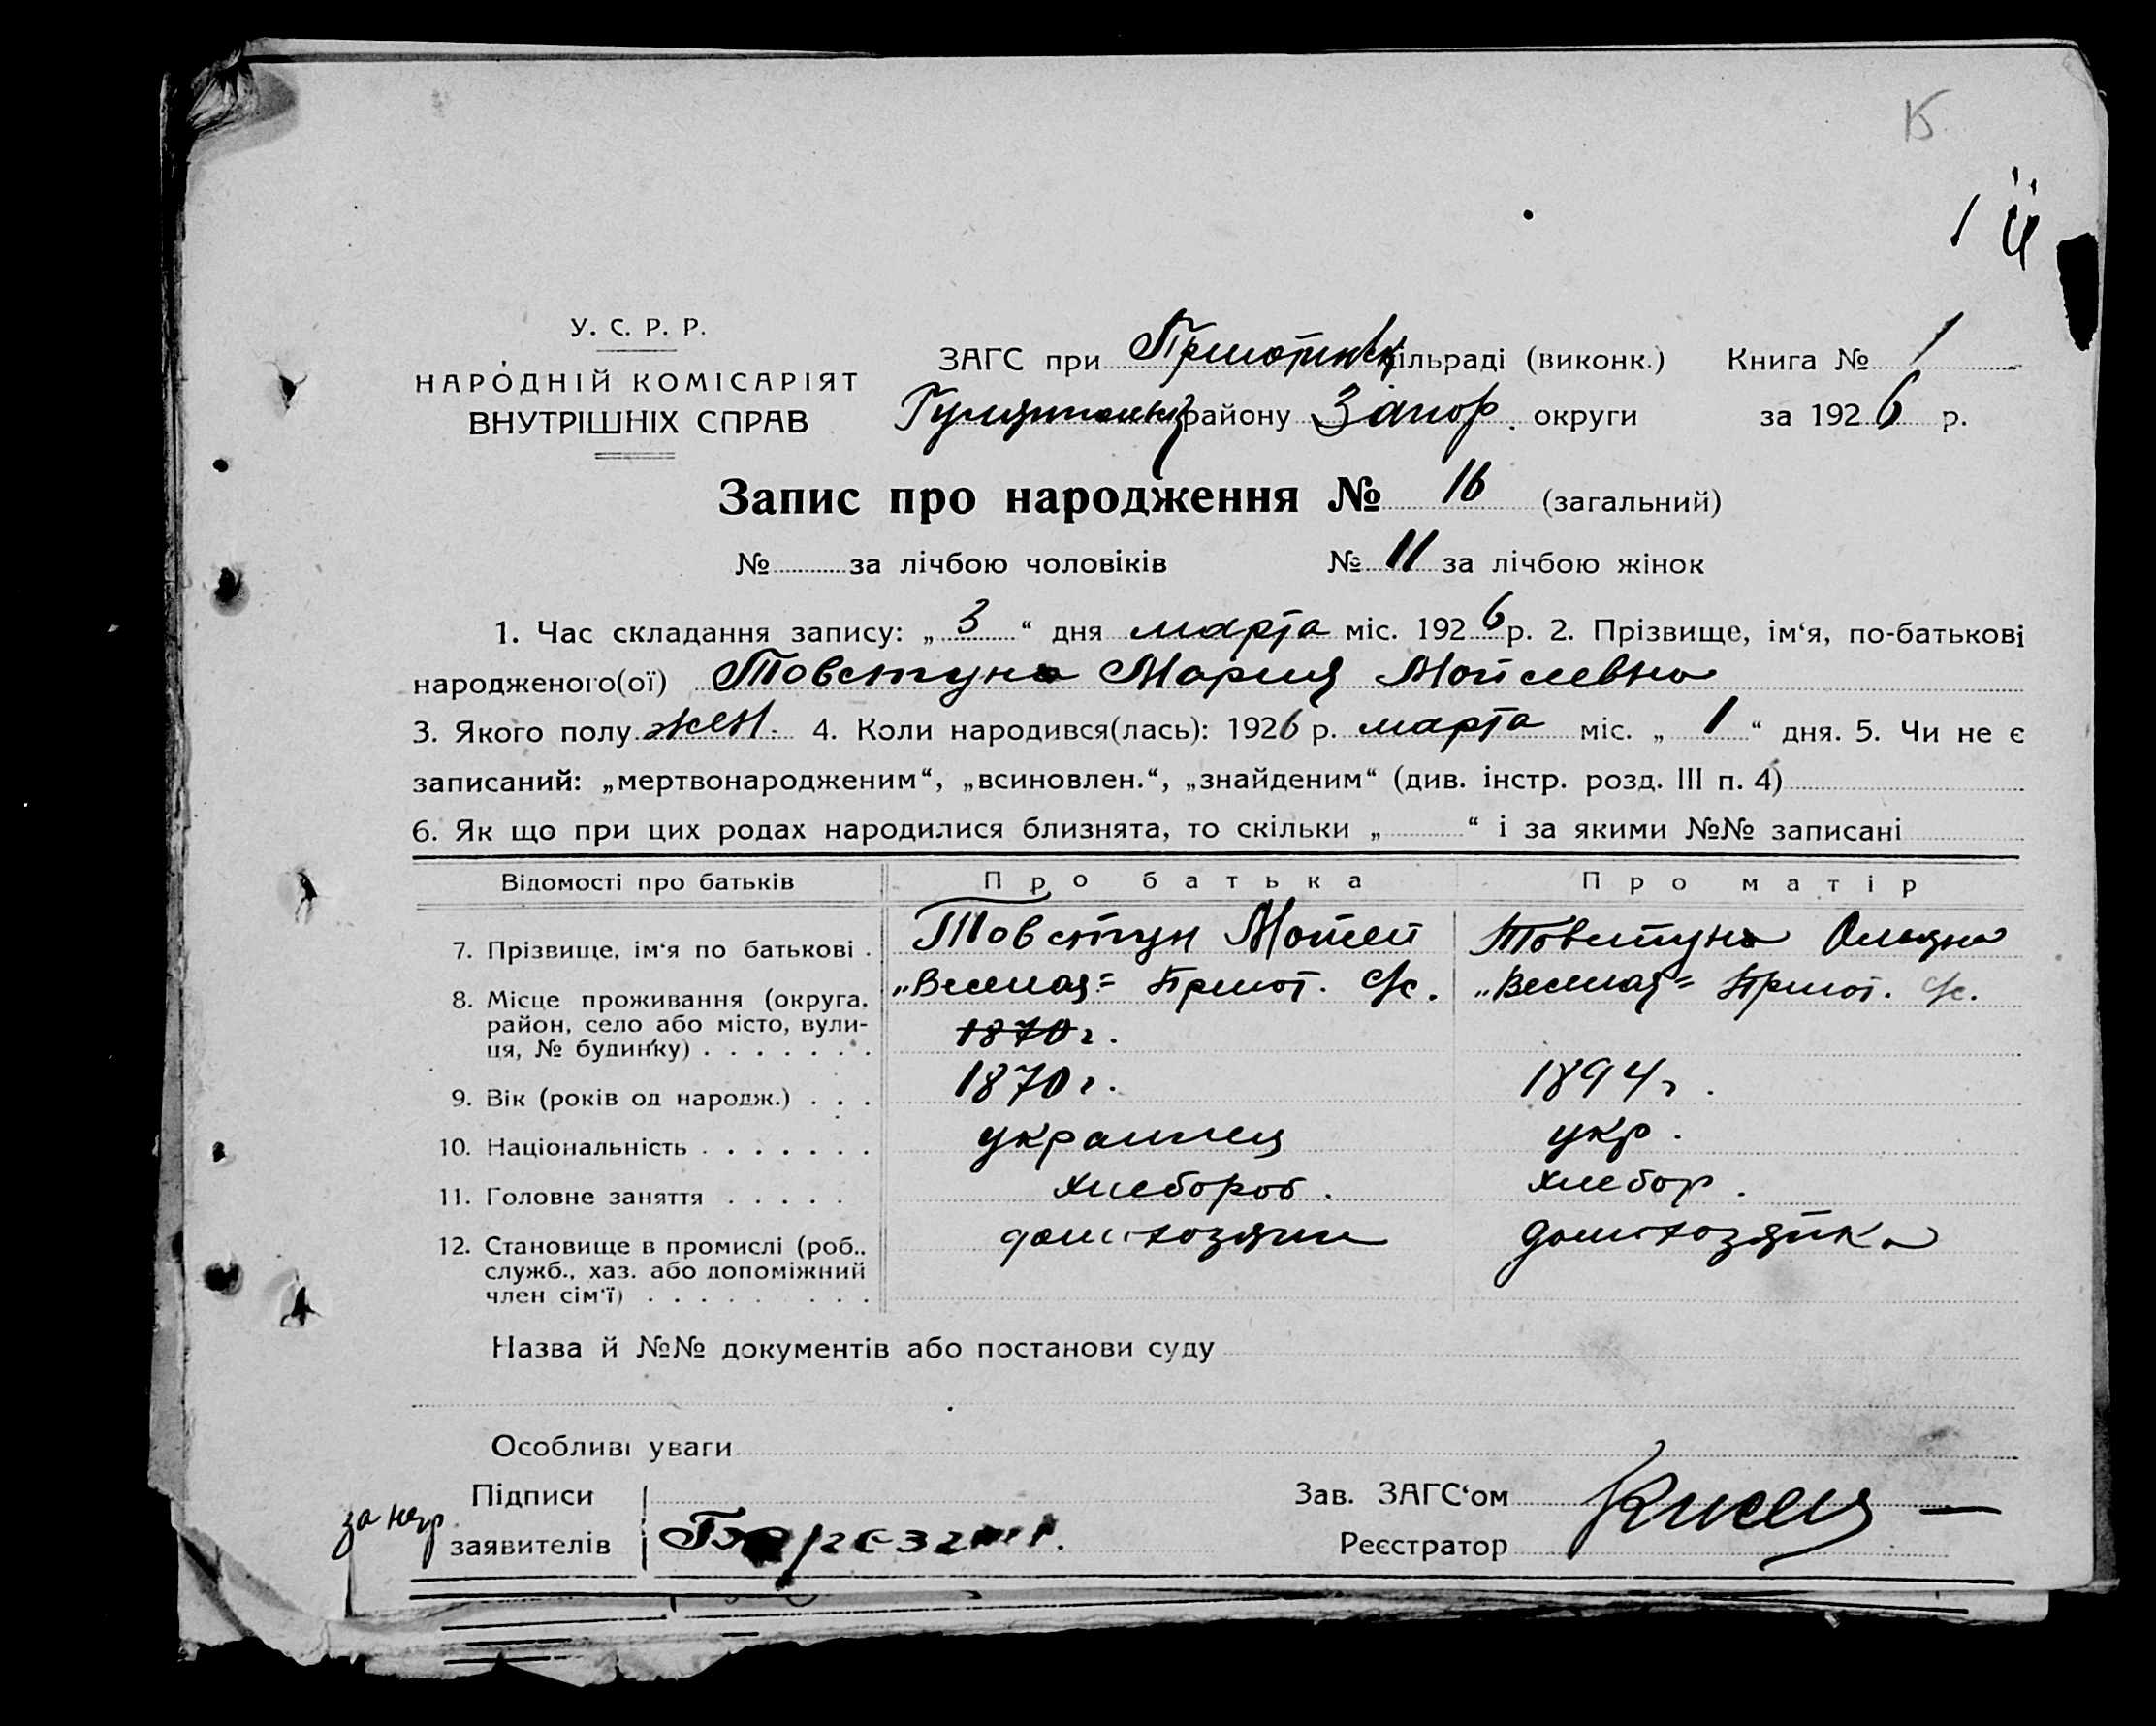 К
У. С. Р. Р.
НАРОДНІЙ КОМІСАРІЯТ
ВНУТРІШНІХ СПРАВ
ЗАГС при Приютинск сільраді (виконк.) Книга № 1
району Запор. округи за 1926 р.
Запис про народження № 16 (загальний)
№ за лічбою чоловіків № 11 за лічбою жінок
1. Час складання запису: „3“ дня марта міс. 1926 р. 2. Прізвище, ім‘я, по-батькові
народженого(ої) Товстуна Мария Мойсевна
3. Якого полу жен. 4. Коли народився(лась): 1926 р. марта міс. „1“ дня. 5. Чи не є
записаний: „мертвонародженим“, „всиновлен.“, „знайденим“ (див. інстр. розд. III п. 4)
6. Як що при цих родах народилися близнята, то скільки „ “ і за якими №№ записані
Відомості про батьків Про батька Про матір
7. Прізвище, ім‘я по батькові . Товстун Мойсей Товстуна
8. Місце проживання (округа, „Веселая“ Приют. с/с. „Веселая“ Приют. с/с.
район, село або місто, вули-
ця, № будинку) . . . . . . . 1870 г.
9. Вік (років од народж.) . . . 1870 г. 1894 г.
10. Національність . . . . . . . украинец укр.
11. Головне заняття . . . . . хлебороб. хлебор.
12. Становище в промислі (роб., домохозяин домохозяйка
служб., хаз. або допоміжний
член сім‘ї) . . . . . . . . .
Назва й №№ документів або постанови суду
Особливі уваги
Підписи Зав. ЗАГС‘ом
за негр. заявителів Реєстратор